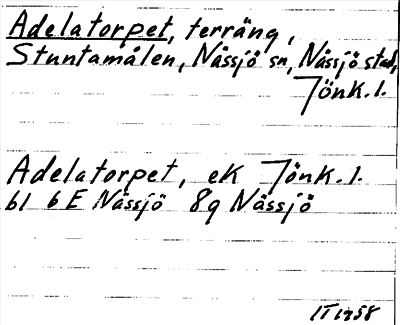 Adelatorpet, terräng,
Stuntamålen, Nässjö sn, Nässjö stad,
Jönk.l.
Adelatorpet, ek Jönk.l.
bl 6E Nässjö 8q Nässjö